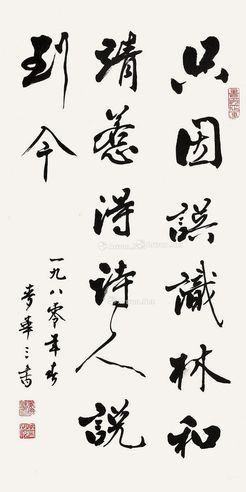 只因误識林和
靖惹得诗人説
到今
一九八零年春
麦華三书